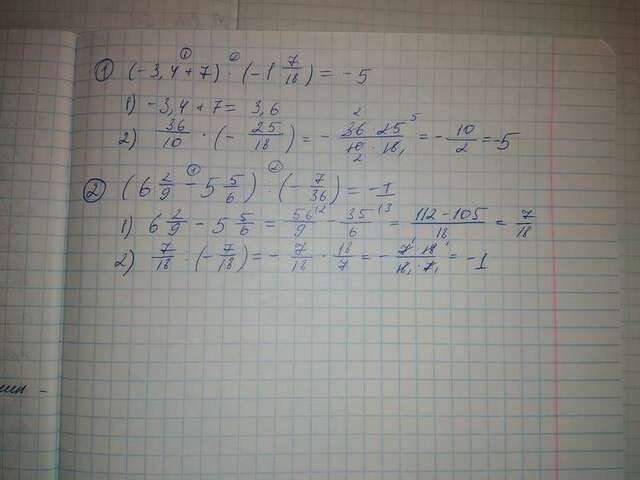 ① (-3,4 + 7) · (-1 7/18) = -5
1) -3,4 + 7 = 3,6
2) 36/10 · (- 25/18) = - 36 · 25 / 10 · 18 = - 10/2 = -5
② (6 2/9 - 5 5/6) : (- 7/36) = -1
1) 6 2/9 - 5 5/6 = 56/9 - 35/6 = 112 - 105 / 18 = 7/18
2) 7/18 : (- 7/18) = - 7/18 · 18/7 = - 7 · 18 / 18 · 7 = -1